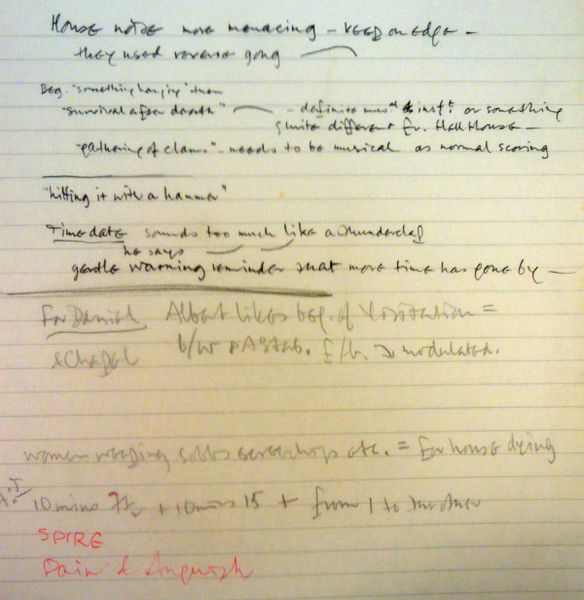 House noise more menacing – KEEP on edge –
they used reverse gong
Beg. "something hanging" then
"survival after death" – definite mus^al inst^t. or something
quite different fr. Hell House –
"gathering of clans" – needs to be musical as normal scoring
"hitting it with a hammer"
Time date sounds too much like a thunderclap
he says
gentle warning reminder that more time has gone by –
For Daniel Albert likes beg. of Visitation =
& Chapel b/w f/b. modulated.
women weeping sobs etc. = for house dying
10 mins 7½ + 10 mins 15 + from 1 to another
SPIRE
Pain & Anguish